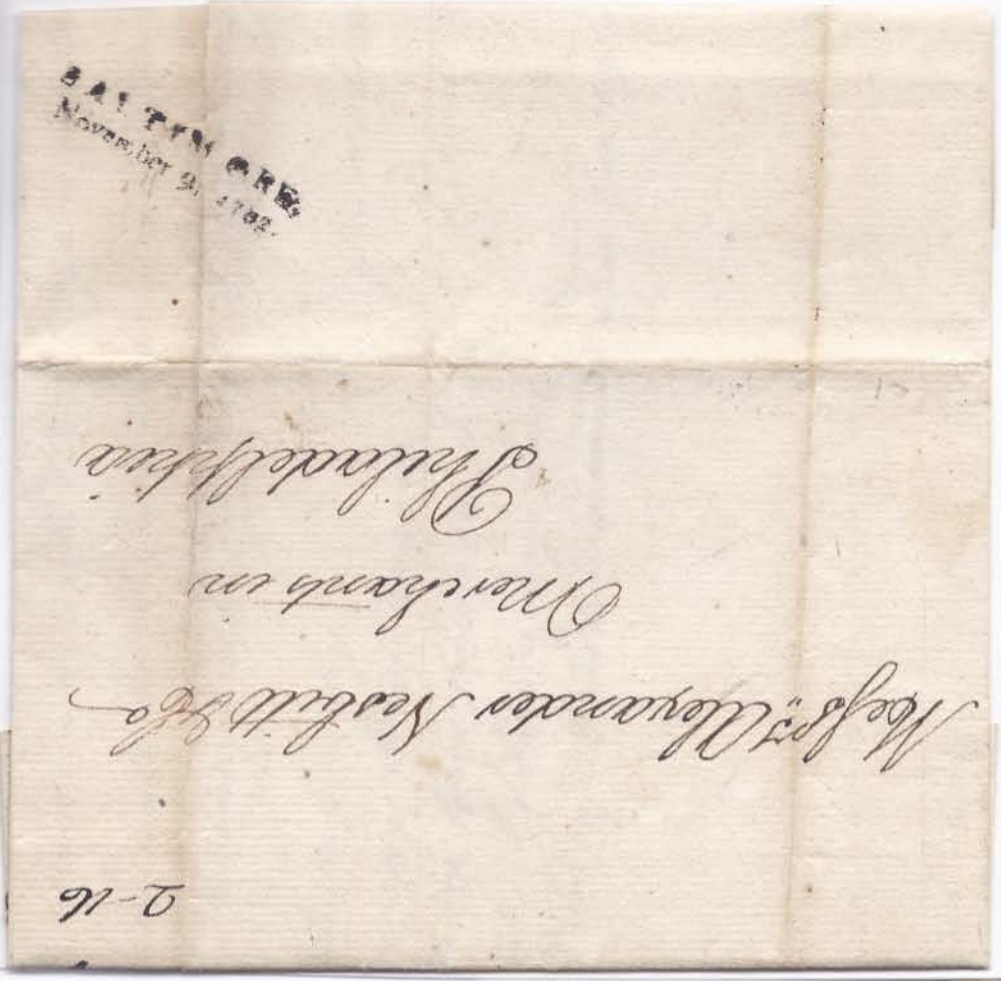 BALTIMORE,
November 9, 1782.
Messrs. Alexander Nesbitt & Co
Merchants in
Philadelphia
2-16